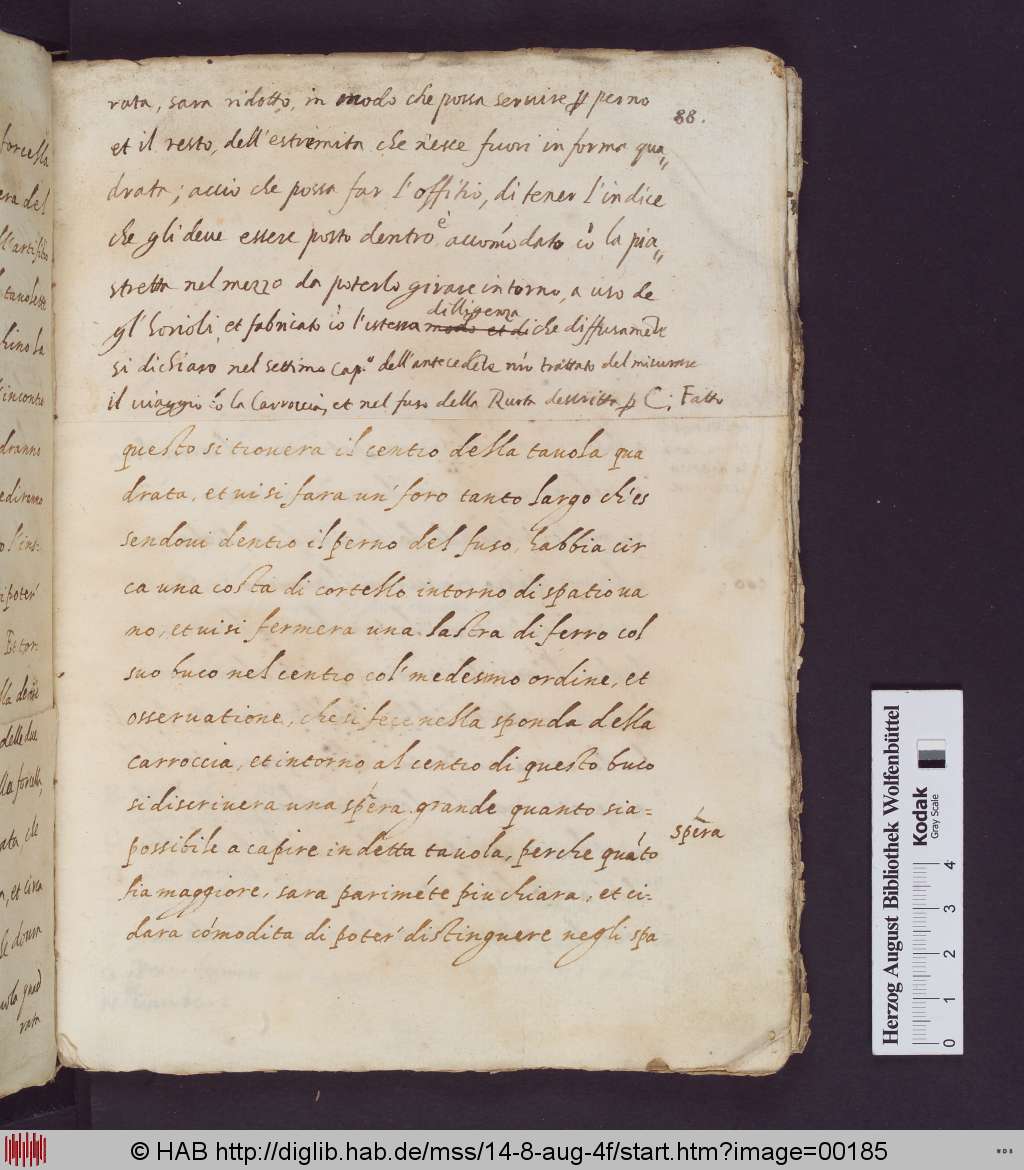 rata, sara ridotto, in modo che possa seruire p perno
88.
et il resto, dell'estremita che n'esce fuori in forma qua„
drata; accio che possa far l'offitio, di tener l'indice
che gli deue essere posto dentro è accom̃odato cõ la pia„
stretta nel mezzo da poterlo girare intorno, a uso de
dilligenza
gl'horioli, et fabricato cõ l'istessa modo et di che diffusamẽte
si dichiaro nel settimo cap.º dell'antecedẽte nr̃o trattato del misurare
il uiaggio cõ la Carroccia, et nel fuso della Ruota descritta p C; Fatto
questo si trouera il centro della tauola qua
drata, et ui si fara un' foro tanto largo ch'es
sendoui dentro il perno del fuso, habbia cir
ca una costa di cortello intorno di spatio ua
no, et ui si fermera una lastra di ferro col
suo buco nel centro col' medesimo ordine, et
osseruatione, che si fece nella sponda della
carroccia, et intorno al centro di questo buco
si discriuera una spẽra grande quanto sia=
spẽra
possibile a capire in detta tauola, perche quãto
sia maggiore, sara parimẽte piu chiara, et ci=
dara cõmodita di poter' distinguere negli spa
forcella
era del
ll'artifitio
tauolette
chino la
l'incontro
dranno
ediranno
o l'ins:
i poter'
Et tor:
lla dente
delle due
lla forcella,
ata ch
a, et circa
le doura
uola quad
rata
Herzog August Bibliothek Wolfenbüttel
Kodak
Gray Scale
0 1 2 3 4
© HAB http://diglib.hab.de/mss/14-8-aug-4f/start.htm?image=00185
WDB